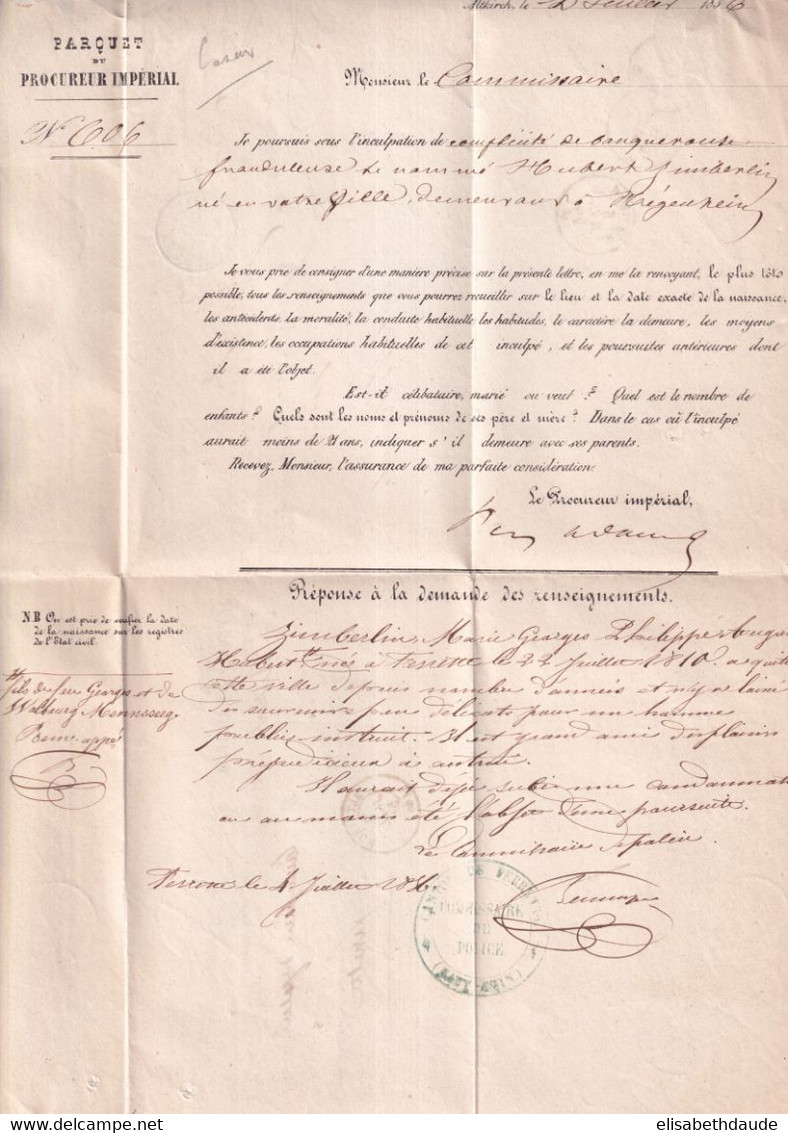 Altkirch, le 2 Juillet 1856
PARQUET
DU
PROCUREUR IMPÉRIAL
N° 606
Monsieur le Commissaire
Je poursuis sous l'inculpation de complicité de banqueroute
frauduleuse le nommé Hubert Zimberlin
né en votre Ville, demeurant à Hégenheim
Je vous prie de consigner d'une manière précise sur la présente lettre, en me la renvoyant, le plus tôt
possible, tous les renseignements que vous pourrez recueillir sur le lieu et la date exacte de la naissance,
les antécédents. La moralité, la conduite habituelle les habitudes, le caractère la demeure, les moyens
d'existence, les occupations habituelles de cet inculpé, et les poursuites antérieures dont
il a été l'objet.
Est-il célibataire, marié ou veuf ? Quel est le nombre de
enfants ? Quels sont les noms et prénoms de ses père et mère ? Dans le cas où l'inculpé
aurait moins de 21 ans, indiquer s'il demeure avec ses parents.
Recevez, Monsieur, l'assurance de ma parfaite considération.
Le Procureur impérial,
Réponse à la demande des renseignements.
N.B On est prié de vérifier la date
de la naissance sur les registres
de l'État civil.
Zimberlin, Marie Georges Philippe
Hubert né à Ferrette le 22 Juillet 1810. a quitté
cette ville depuis nombre d'années et n'y a laissé
des souvenirs peu délicats pour un homme
instruit. Il est grand ami des
préjudicieux à autrui.
Il aurait déjà subi une
ou au moins été l'objet d'une poursuite.
Le Commissaire
fils de feu Georges et de
Ferrette le 4 Juillet 1856
CANTON DE FERRETTE
COMMISSAIRE
DE
POLICE
(HAUT-RHIN)
elisabethdaude